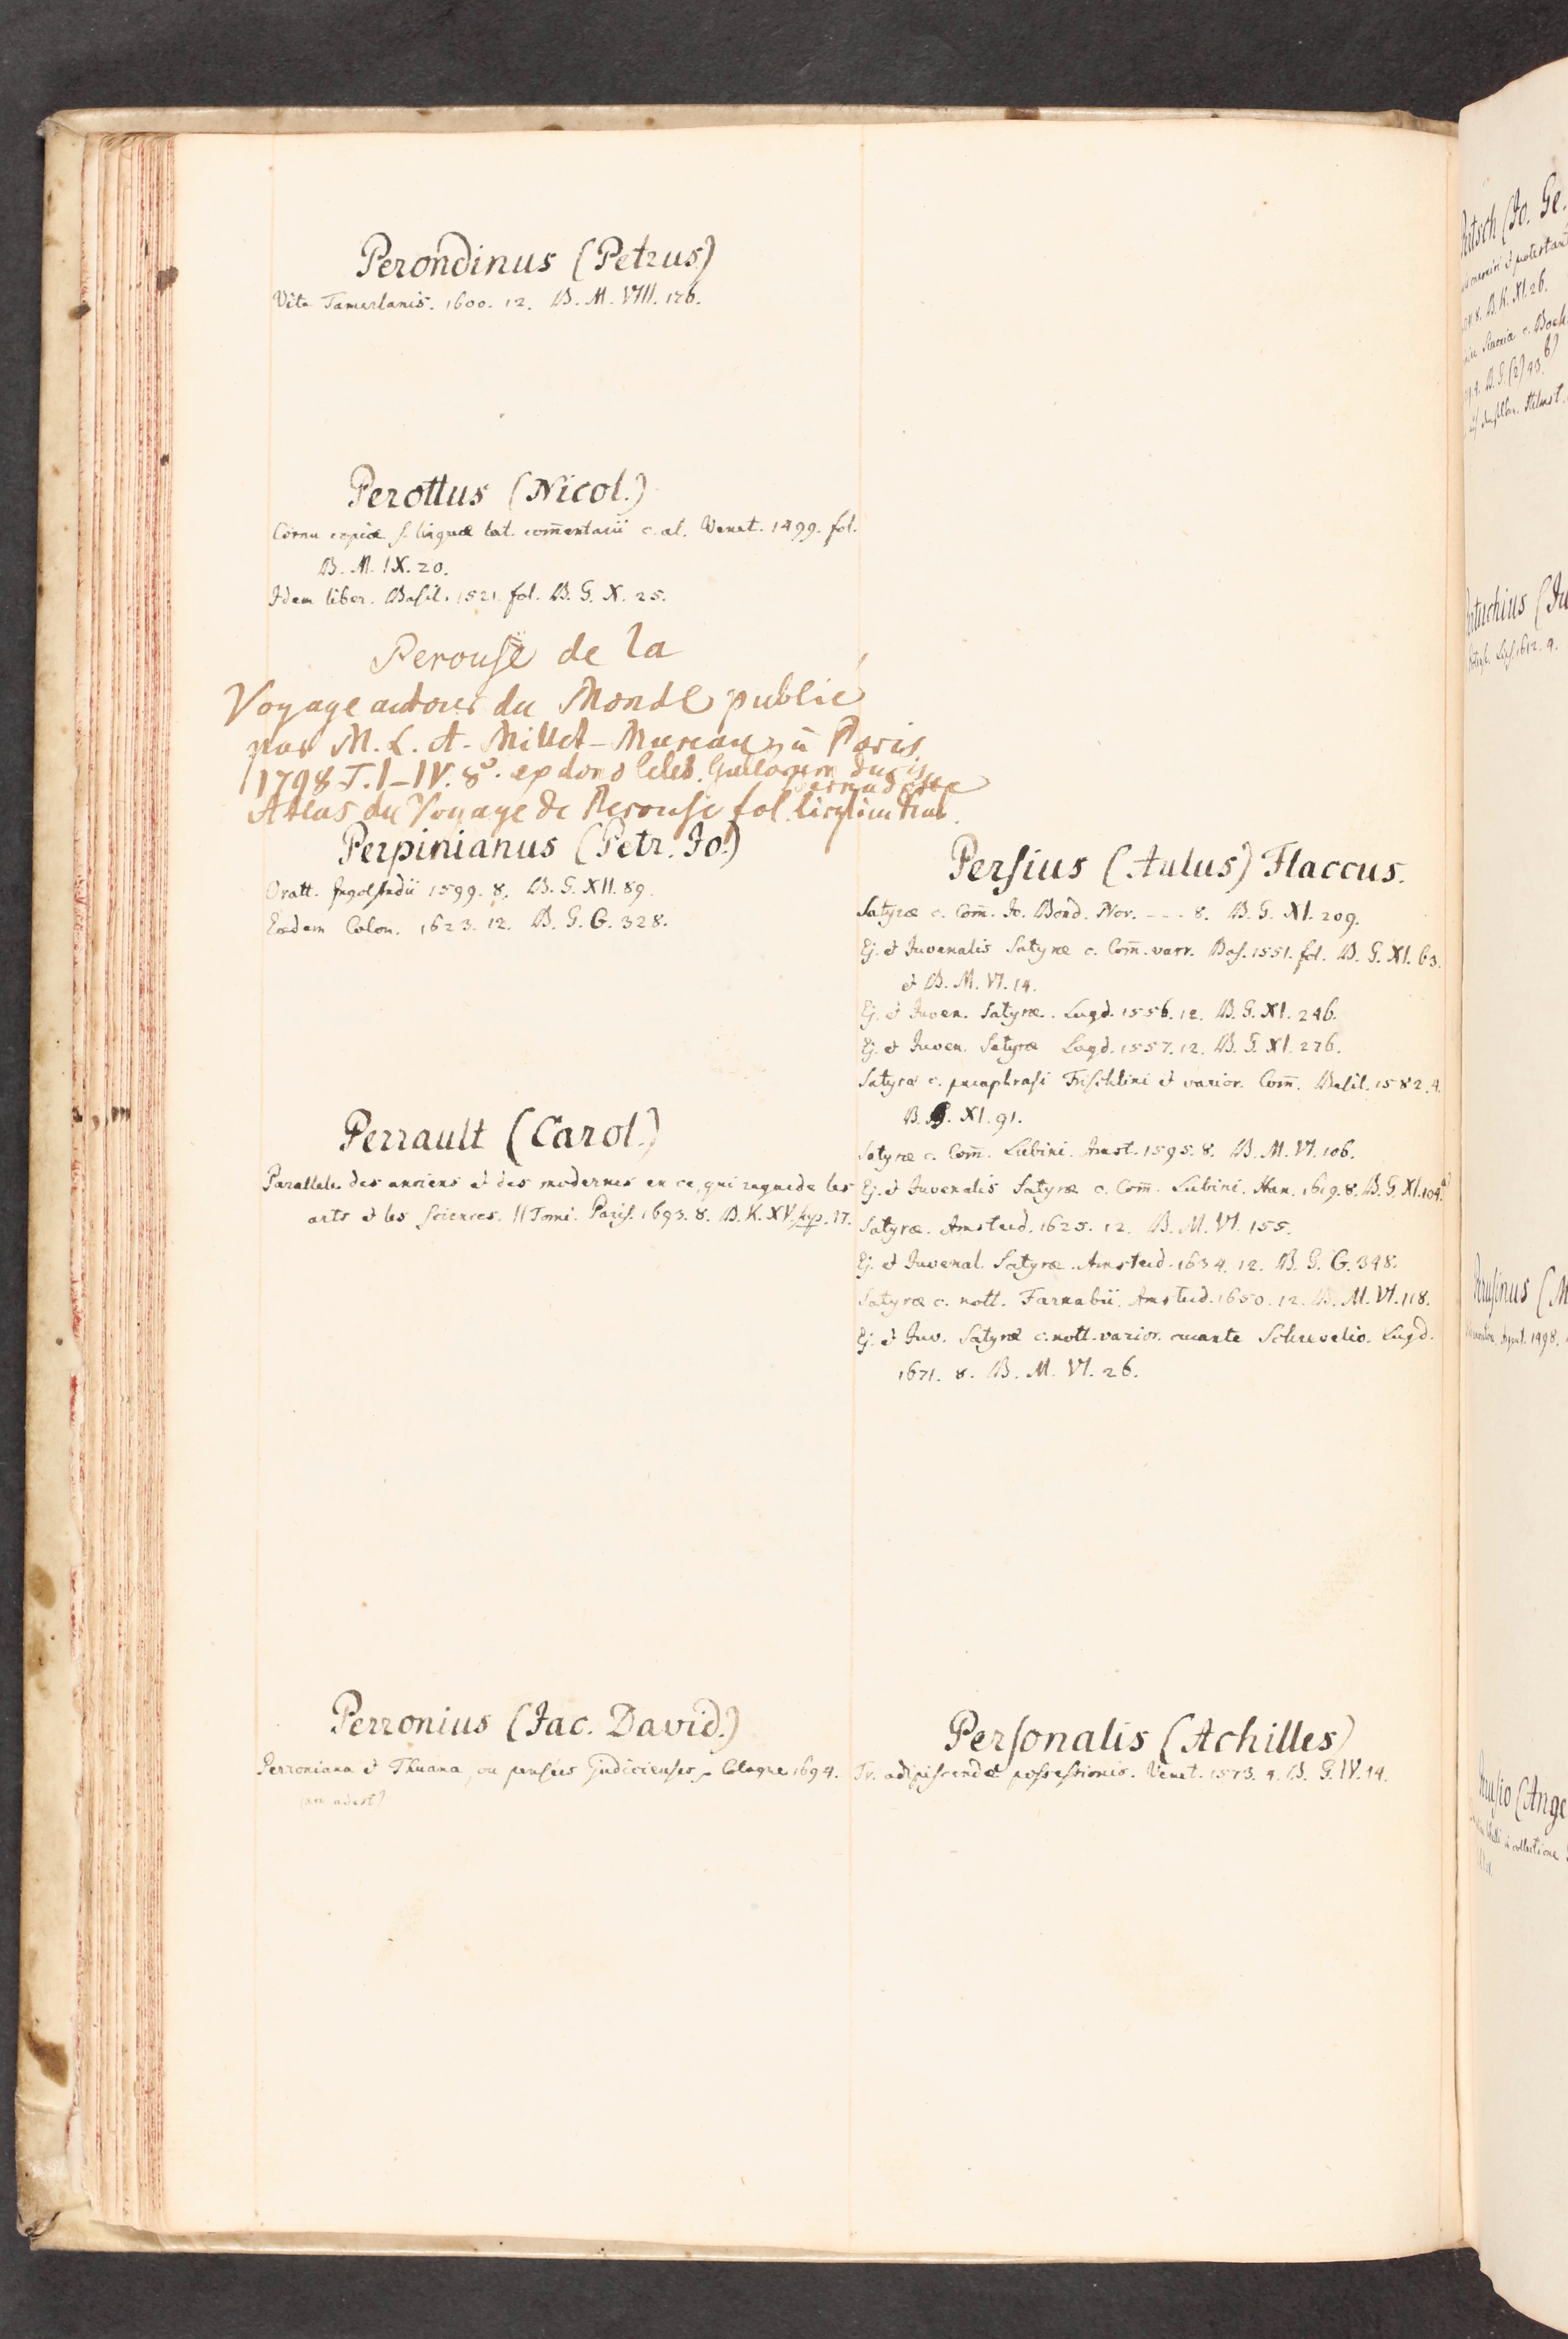 Perondinus (Petrus)
Vita Tamerlanis. 1600. 12. B. M. VIII. 126.
Perottus (Nicol.)
Cornu copiæ s. linguæ lat. com̄entarii c. al. Venet. 1499. fol.
B. M. IX. 20.
Idem liber. Basil. 1521. fol. B. G. X. 25.
Perouse de la
Voyage autour du Monde public
par M. L. A. Millet-Mureau, à Paris
1798 T. I-IV. 8°. ex dono celeb.
Bernadotte
Atlas du Voyage de Perouse fol.
Perpinianus (Petr. Jo.)
Oratt. Ingolstadii 1599. 8. B. G. XII. 89.
Eædem Colon. 1623. 12. B. G. G. 328.
Perrault (Carol.)
Parallele des anciens et des modernes en ce, qui regarde les
arts et les sciences. II Tomi. Paris. 1693. 8. B. K. XV. sup. 17.
Perronius (Jac. David.)
Perroniana et Thuana, ou pensées judicieuses, Cologne 1694.
(an adest)
Persius (Aulus) Flaccus.
Satyræ c. Com̄. Jo. Bond. Nor. --- 8. B. G. XI. 209.
Ej. et Juvenalis Satyræ c. Com̄. varr. Bas. 1551. fol. B. G. XI. 63.
et B. M. VI. 14.
Ej. et Juven. Satyræ. Lugd. 1556. 12. B. G. XI. 246.
Ej. et Juven. Satyræ Lugd. 1557. 12. B. G. XI. 276.
Satyræ c. paraphrasi Frischlini et varior. Com̄. Basil. 1582. 4.
B. G. XI. 91.
Satyræ c. Com̄. Lubini. Amst. 1595. 8. B. M. VI. 106.
Ej. et Juvenalis Satyræ c. Com̄. Lubini. Han. 1619. 8. B. G. XI. 104.
Satyræ. Amsterd. 1625. 12. B. M. VI. 155.
Ej. et Juvenal. Satyræ. Amsterd. 1634. 12. B. G. G. 348.
Satyræ c. nott. Farnabii. Amsterd. 1650. 12. B. M. VI. 118.
Ej. et Juv. Satyræ c. nott. varior. curante Schrevelio. Lugd.
1671. 8. B. M. VI. 26.
Personalis (Achilles)
Tr. adipiscendæ possessionis. Venet. 1573. 4. B. G. IV. 44.